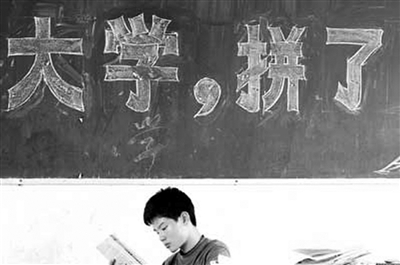 大学，拼了
学